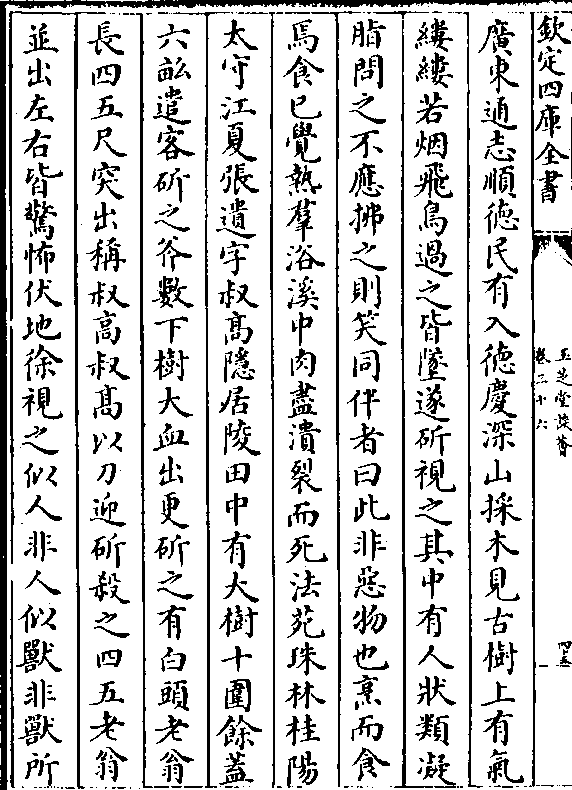 欽定四庫全書
玉芝堂談薈
卷三十六
四五
廣東通志順徳民有入徳慶深山採木見古樹上有氣
縷縷若烟飛鳥過之皆墜遂斫視之其中有人狀類凝
脂問之不應拂之則笑同伴者曰此非惡物也烹而食
焉食已覺熱羣浴溪中肉盡潰裂而死法苑珠林桂陽
太守江夏張遺字叔髙隱居陵田中有大樹十圍餘蓋
六畝遣客斫之斧數下樹大血出更斫之有白頭老翁
長四五尺突出稱叔髙叔髙以刀迎斫殺之四五老翁
並出左右皆驚怖伏地徐視之似人非人似獸非獸所